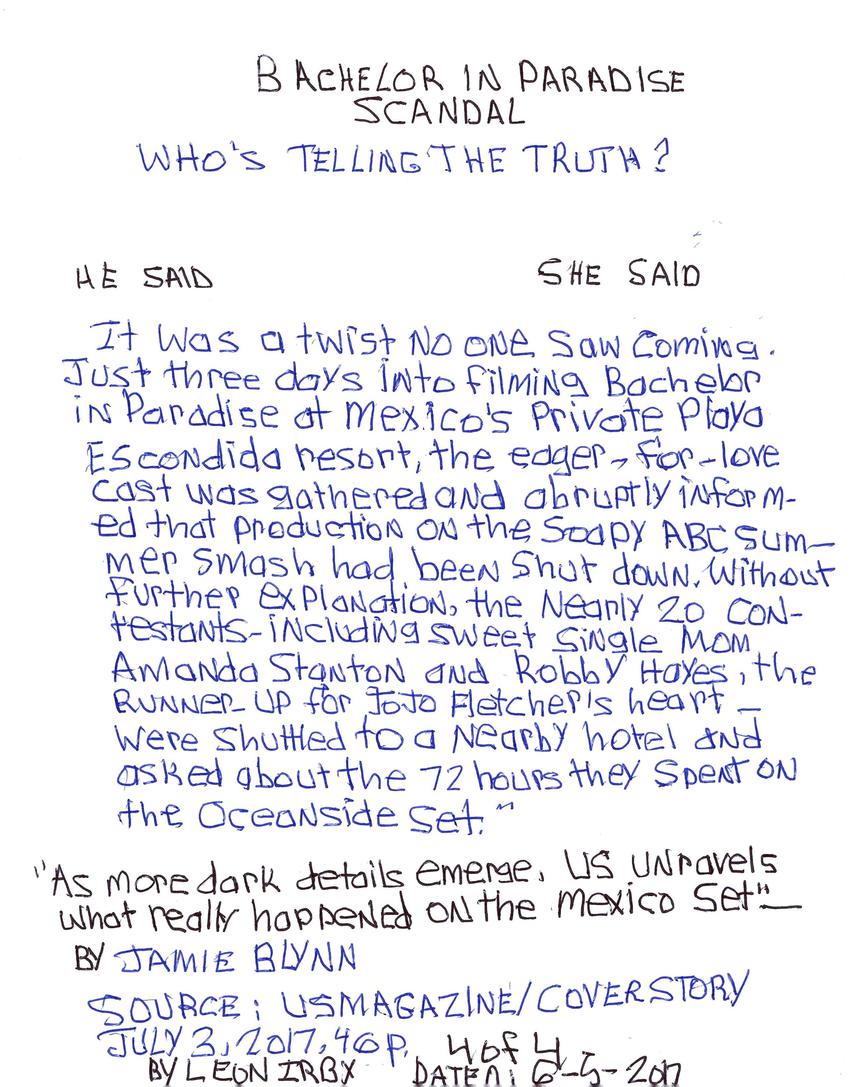 BACHELOR IN PARADISE
SCANDAL
WHO'S TELLING THE TRUTH?
HE SAID SHE SAID
It was a twist NO ONE saw coming.
Just three days into filming Bachelor
in Paradise at Mexico's Private Playa
Escondida resort, the eager-for-love
cast was gathered and abruptly inform-
ed that production on the Soapy ABC Sum-
mer smash had been shut down. Without
further explanation, the nearly 20 con-
testants-including sweet single mom
Amanda Stanton and Robby Hayes, the
RUNNER-UP for JoJo Fletcher's heart -
were shuttled to a nearby hotel and
asked about the 72 hours they spent on
the Oceanside set."
"As more dark details emerge, US unravels
what really happened on the Mexico set"-
BY JAMIE BLYNN
SOURCE: USMAGAZINE/COVER STORY
JULY 3, 2017, 46 p. 4 of 4
BY LEON IRBY DATED: 6-5-2017